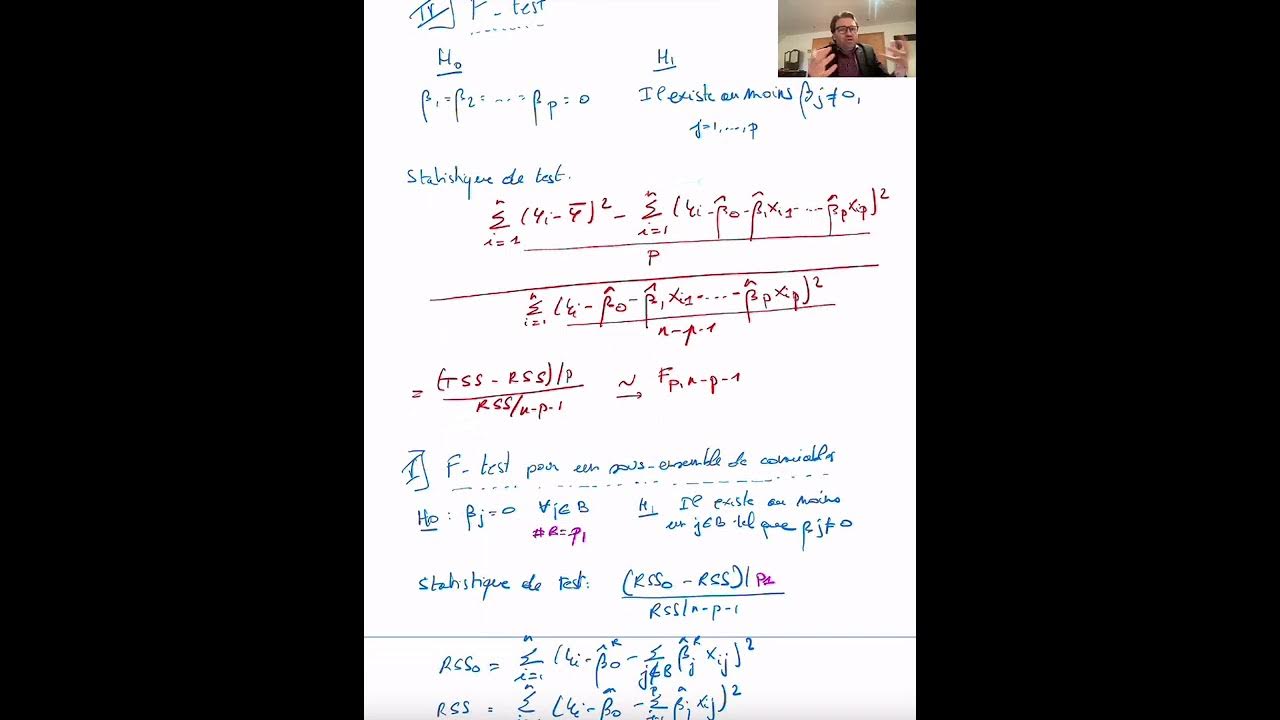 IV] F-test
H₀ H₁
β₁=β₂=...=βp=0 Il existe au moins βj≠0,
j=1,...,p
Statistique de test.
∑ⁿᵢ₌₁ (Yi-Ȳ)² - ∑ⁿᵢ₌₁ (Yi-β̂₀-β̂₁xi1-...-β̂pxip)²
p
∑ⁿᵢ₌₁ (Yi-β̂₀-β̂₁xi1-...-β̂pxip)²
n-p-1
= (TSS - RSS)/p / RSS/n-p-1 ~→ Fp,n-p-1
V] F-test pour un sous-ensemble de covariables
H₀ : βj=0 ∀j∈B H₁ Il existe au moins
#B=p₁ un j∈B tel que βj≠0
Statistique de test: (RSS₀ - RSS)/p₁
RSS/n-p-1
RSS₀ = ∑ⁿᵢ₌₁ (Yi-β̂₀ᴿ-∑j∉B β̂jᴿ xij)²
RSS = ∑ⁿᵢ₌₁ (Yi-β̂₀-∑ᵖ β̂j xij)²